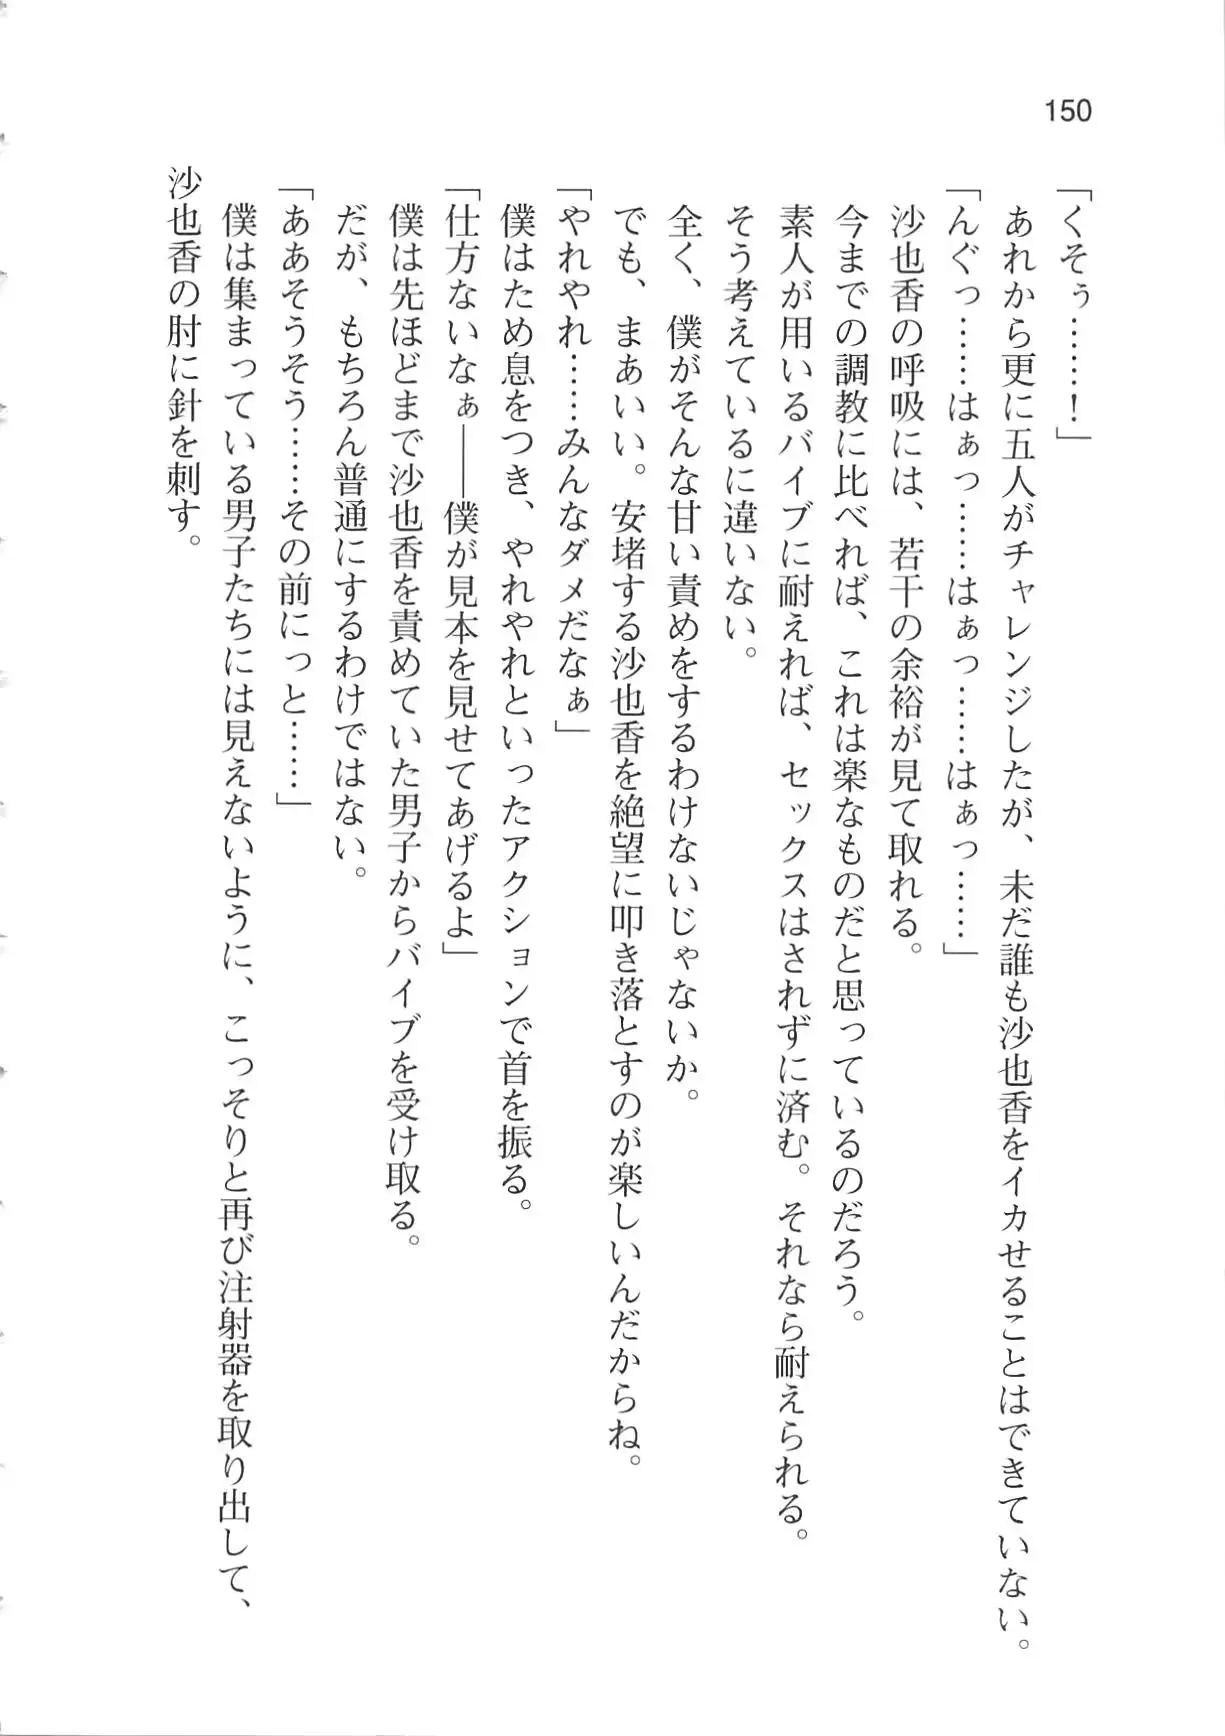 150
「くそぅ……！」
あれから更に五人がチャレンジしたが、未だ誰も沙也香をイカせることはできていない。
「んぐっ……はぁっ……はぁっ……はぁっ……」
沙也香の呼吸には、若干の余裕が見て取れる。
今までの調教に比べれば、これは楽なものだと思っているのだろう。
素人が用いるバイブに耐えれば、セックスはされずに済む。それなら耐えられる。
そう考えているに違いない。
全く、僕がそんな甘い責めをするわけないじゃないか。
でも、まあいい。安堵する沙也香を絶望に叩き落とすのが楽しいんだからね。
「やれやれ……みんなダメだなぁ」
僕はため息をつき、やれやれといったアクションで首を振る。
「仕方ないなぁ――僕が見本を見せてあげるよ」
僕は先ほどまで沙也香を責めていた男子からバイブを受け取る。
だが、もちろん普通にするわけではない。
「ああそうそう……その前にっと……」
僕は集まっている男子たちには見えないように、こっそりと再び注射器を取り出して、
沙也香の肘に針を刺す。